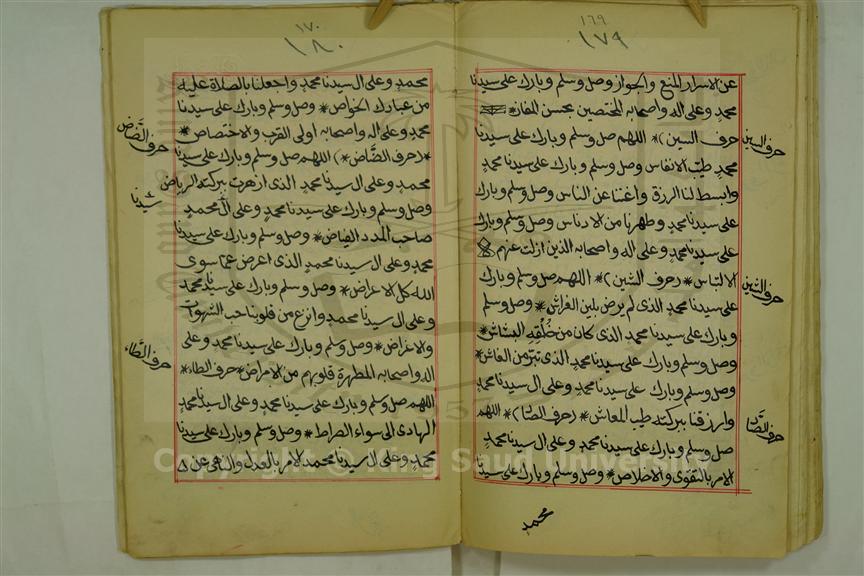 ١٦٩
١٧٩
عن الاسرار المنع والجواز وصل وسلم وبارك على سيدنا
محمد وعلى اله واصحابه المختصين بحسن المفاز*
حرف السين)* اللهم صل وسلم وبارك على سيدنا
حرف السين
محمد طيب الانفاس وصل وسلم وبارك على سيدنا محمد
وابسط لنا الرزق واغننا عن الناس وصل وسلم وبارك
على سيدنا محمد وطهرنا من الادناس وصل وسلم وبارك
على سيدنا محمد وعلى اله واصحابه الذين ازلت عنهم
الالتباس* (حرف الشين)* اللهم صل وسلم وبارك
حرف الشين
على سيدنا محمد الذى لم يرض بلين الفراش* وصل وسلم
وبارك على سيدنا محمد الذى كان من خلقه البشاش*
وصل وسلم وبارك على سيدنا محمد الذى تبرّ من الغاش*
وصل وسلم وبارك على سيدنا محمد وعلى ال سيدنا محمد
وارزقنا ببركته طيب المعاش* (حرف الصاد)* اللهم
حرف الصَّاد
صل وسلم وبارك على سيدنا محمد وعلى ال سيدنا محمد
الامر بالتقوى والاخلاص* وصل وسلم وبارك على سيدنا
محمد
١٧٠
١٨٠
محمد وعلى ال سيدنا محمد واجعلنا بالصلاة عليه
من عبادك الخواص* وصل وسلم وبارك على سيدنا
محمد وعلى اله واصحابه اولى القرب والاختصاص*
*(حرف الضَّاض*) اللهم صل وسلم وبارك على سيدنا
حرف الضَّاض
محمد وعلى ال سيدنا محمد الذى ازهرت ببركته الرياض
وصل وسلم وبارك على سيدنا محمد وعلى ال محمد
سيدنا
صاحب المدد الفياض* وصل وسلم وبارك على سيدنا
محمد وعلى ال سيدنا محمد الذى اعرض عما سوى
الله كل الاعراض* وصل وسلم وبارك على سيدنا محمد
وعلى ال سيدنا محمد وانزع من قلوبنا حب الشهوات
والاغراض* وصل وسلم وبارك على سيدنا محمد وعلى
اله واصحابه المطهرة قلوبهم من الامراض* حرف الطاء*
حرف الطَّاء
اللهم صل وسلم وبارك على سيدنا محمد وعلى ال سيدنا محمد
الهادى الى سواء الصراط* وصل وسلم وبارك على سيدنا
محمد وعلى ال سيدنا محمد الامر بالعدل والناهى عن
Copyright © King Saud University
1957